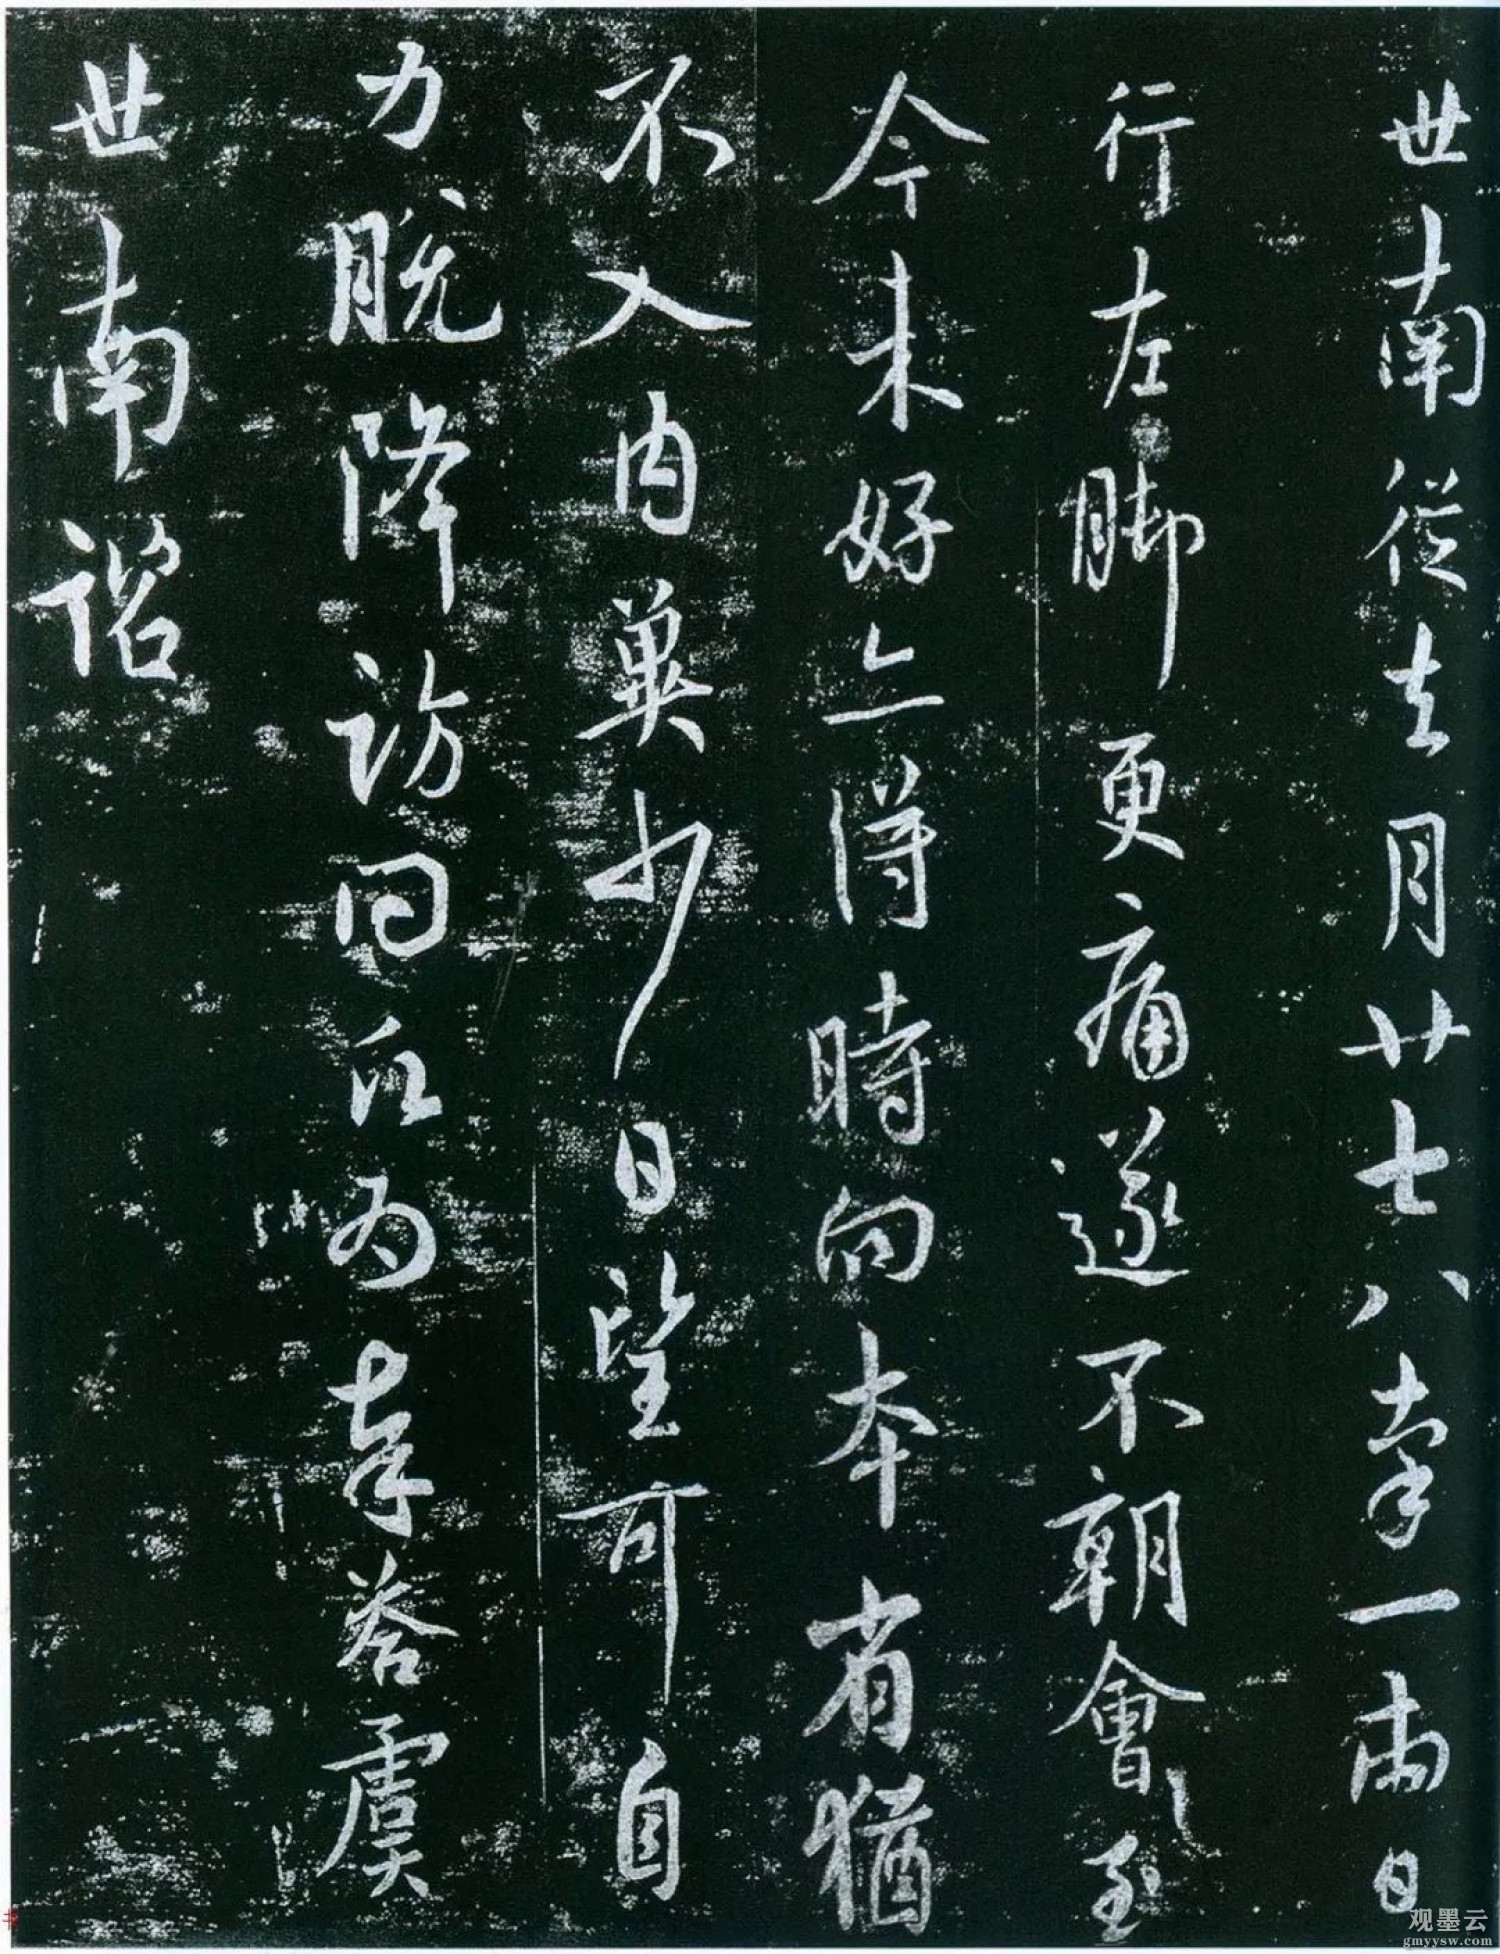 世南從去月廿七八率一兩日
行左脚更痛遂不朝會至
今未好亦得時向本省猶
不入内冀少日望可自
力脱降訪問願為奉答虞
世南諮
观墨云
gmyysw.com